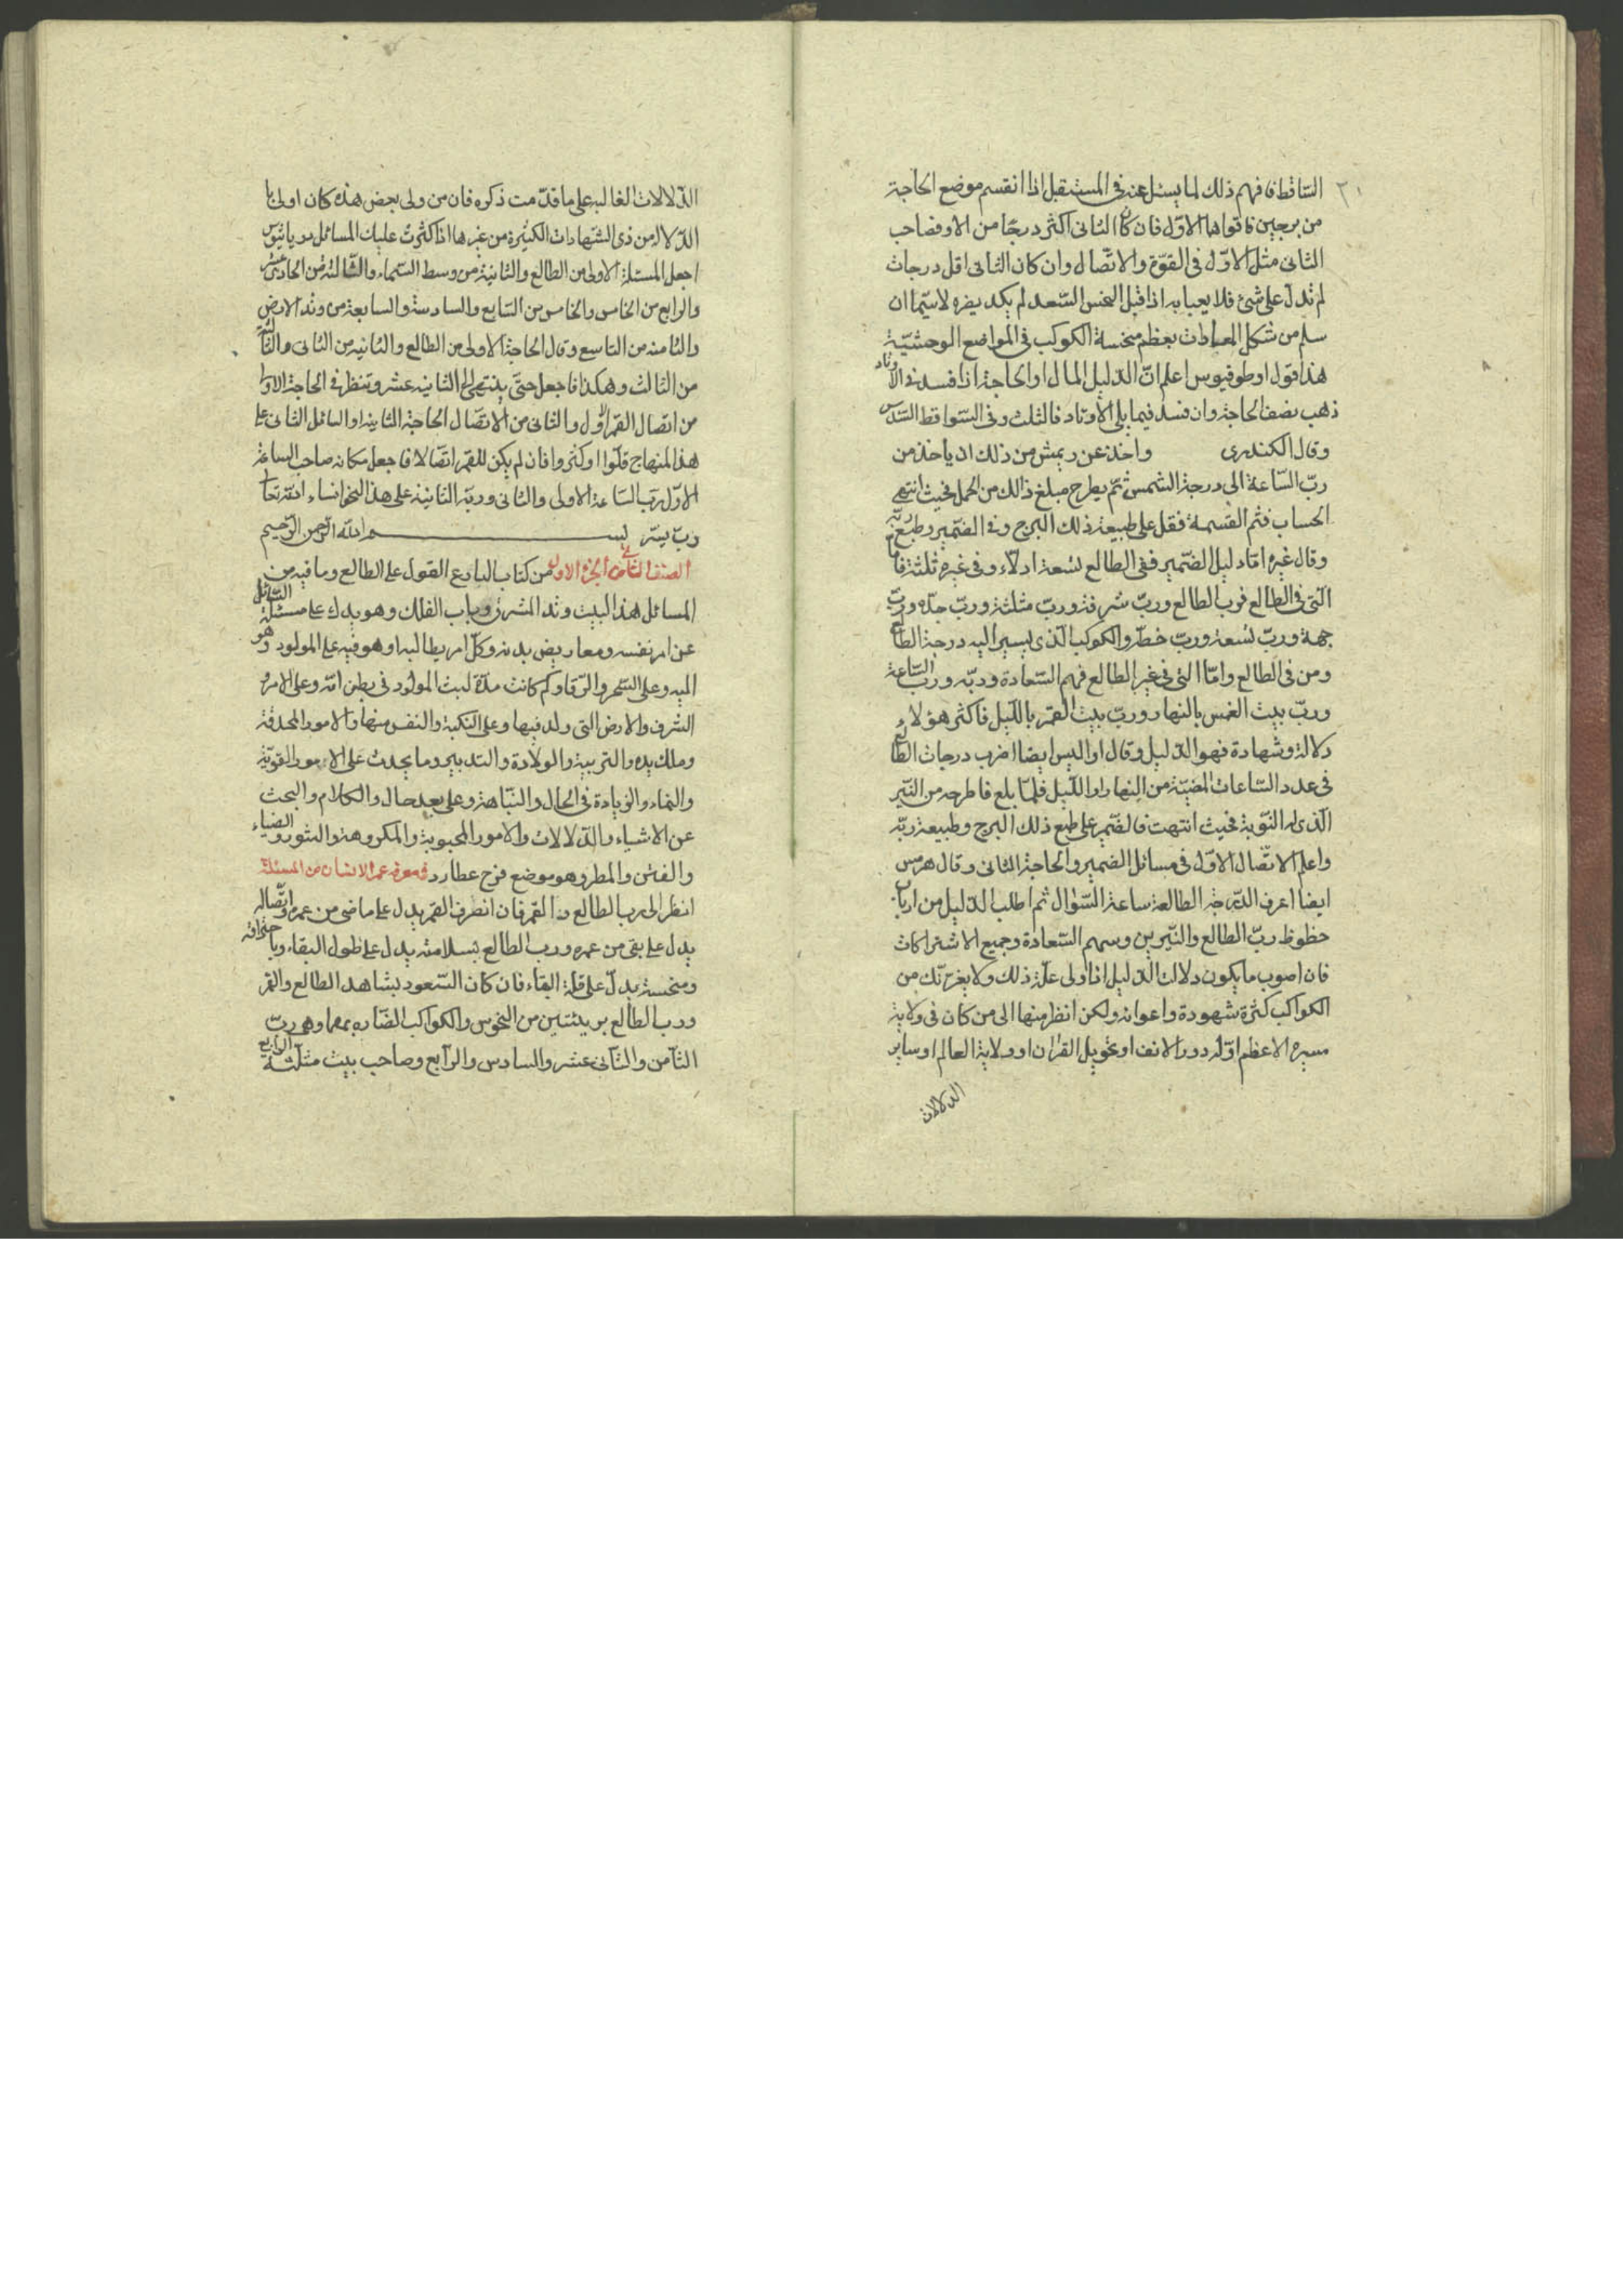 ٢١
الساقط فافهم ذلك لما يسئل عنه فى المستقبل اذا انقسم موضع الحاجة
من برجين فاقواها الاوّل فان كان الثانى اكثر درجًا من الاو فصاحب
الثانى مثل الاوّل فى القوّة والاتّصال وان كان الثانى اقل درجات
لم تدلّ على شئ فلا يعبا به اذا قبل النحس السّعد لم يكد يضره لاسيّما ان
سلم من شكل المعادات بعظم منحسة الكوكب فى المواضع الوحشيّة
هذا قول اوطوفيوس اعلم انّ الدّليل المال او الحاجة اذا فسد فى الاوتاد
ذهب نصف الحاجة وان فسد فيما يلى الاوتاد فالثلث وفى السّواقط السّدس
وقال الكندرى واخذ عن ريمش من ذلك ان يأخذ من
ربّ السّاعة الى درجة الشمس ثمّ يطرح مبلغ ذالك من الحمل فحيث انتهى
الحساب فثم القسمة فقل على طبيعة ذلك البرج وفى الضّمير وطبع ربّه
وقال غيره امّا دليل الضّمير ففى الطالع تسعة ادلّاء وفى غيره ثلثة فامّا
الّتى فى الطالع فرب الطالع وربّ شرفة وربّ مثلثة وربّ حدّه وربّ
جهة وربّ تسعة وربّ خطّر والكوكب الّذى يسير اليه درجة الطالع
ومن فى الطالع وامّا التى فى غير الطالع فهم السّعادة وربّه وربّ السّاعة
وربّ بيت الشمس بالنهار وربّ بيت القمر بالليل فاكثر هؤلاء
دلالة وشهادة فهو الدّليل وقال اواليس ايضا اضرب درجات الطالع
فى عدد السّاعات المضيّة من النهار او اللّيل فلمّا بلغ فاطرحه من النّير
الّذى له النّوبة فحيث انتهت فالضّمير على طبع ذلك البرج وطبيعة ربّه
واعلم الاتّصال الاوّل فى مسائل الضمير والحاجة الثانى وقال هرمس
ايضا اعرف الدّرجة الطالعة ساعة السّؤال ثم اطلب الدّليل من ارباب
حظوظ ربّ الطالع والنّيرين وسهم السّعادة وجميع الاشتراكات
فان اصوب مايكون دلالت الدّليل اذا ولى علّة ذلك ولا يغرّنّك من
الكواكب كثرة شهودة واعوانه ولكن انظر منها الى من كان فى ولاية
مسيره الاعظم او له دور الانف او تحويل القران او ولاية العالم او ساير
الدلالات
الدّلالات الغالبه على ما قدّمت ذكره فان من ولى بعض هذه كان اولى با
الدّلالة من ذى الشّهادات الكثيرة من غيرها اذا كثرت عليك المسائل
اجعل المسئلة الاولى من الطالع والثانية من وسط السّماء والثّالثة من الحادى عشر
والرابع من الخامس والخامس من السّابع والسادسة والسابعة من وتد الارض
والثامنه من التاسع وقال الحاجة الاولى من الطالع والثانيه من الثانى والثالثة
من الثالث وهكذا فاجعل حتّى ينتهى الى الثانيه عشر وتنظر فى الحاجة الاولى
من اتصال القمر الاول والثانى من الاتّصال الحاجة الثانية او السائل الثانى على
هذا المنهاج قلّوا او كثروا فان لم يكن للقمر اتّصالا فاجعل مكانه صاحب الساعة
الاوّل ربّ السّاعة الاولى والثانى وربّه الثانية على هذا النحو انشاء الله تعا
ربّ يسّر بســـم الله الرّحمن الرّحيم
الصنف الثانى من الجزء الاول من كتاب البارع القول على الطالع وما فيه من
المسائل هذا البيت وتد المشرق وباب الفلك وهو يدل على مسئلة السّائل
عن امر نفسه ومعاريض بدنه وكلّ امر يطالبه او هو فيه على المولود وهو
اليه وعلى السّحر والرّقا وكم كانت مدّة لبث المولود فى بطن امّه وعلى الامر و
الشرف والارض التى ولد فيها وعلى النكبة والنفس منها والامور المحدقة
وملك يده والتربية والولادة والتدبير وما يحدث على الامور القويّة
والنماء والزيادة فى الحال والنّباهة وعلى بعد حال والكلام والبحث
عن الاشياء والدّلالات والامور المحبوبة والمكروهة والنور والضياء
والفتن والمطر وهو موضع فرح عطارد فى معرفة عمر الانسان من المسئلة
انظر الى رب الطالع والقمر فان انصرف القمر يدل على ما مضى من عمره واتّصاله
يدل على بقى من عمره ورب الطالع بسلامته يدل على طول البقاء وباحتراقه
ومنحسة يدلّ على قلة البقاء فان كان السّعود يشاهد الطالع والقمر
ورب الطالع بريئتين من النحوس والكواكب الضّاره بهما وهى ربّ
الثّامن والثّانى عشر والسادس والرّابع وصاحب بيت مثلثة الرّابع